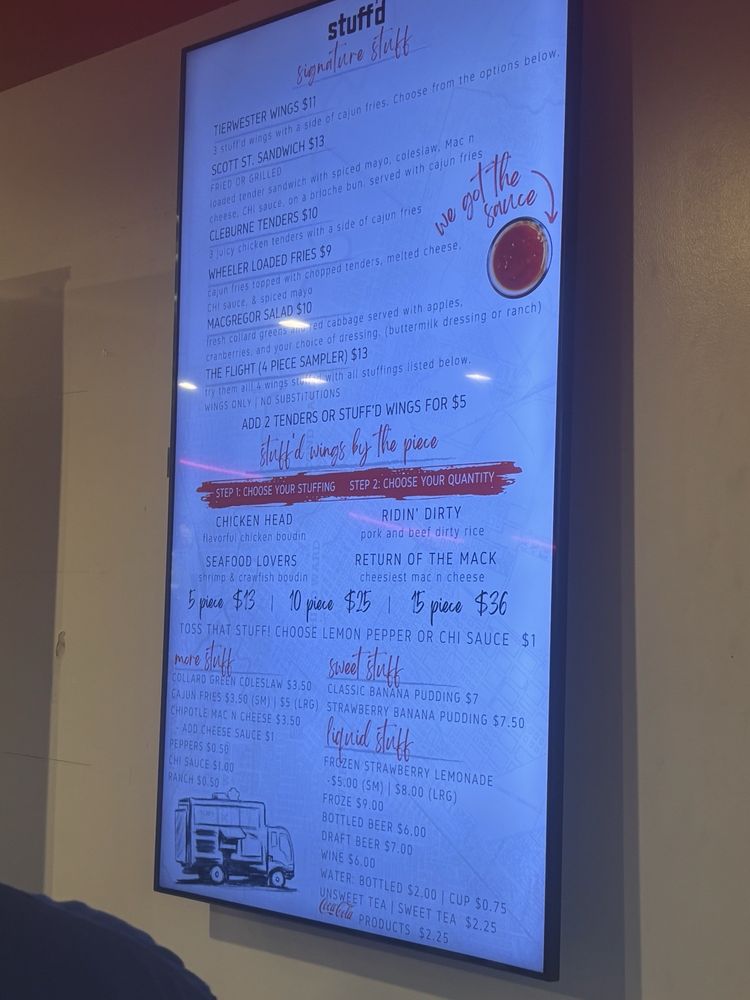 stuff'd
signature stuff
TIERWESTER WINGS $11
3 stuff'd wings with a side of cajun fries. Choose from the options below.
SCOTT ST. SANDWICH $13
FRIED OR GRILLED
loaded tender sandwich with spiced mayo, coleslaw, Mac n
cheese, CHI sauce, on a brioche bun. served with cajun fries
we got the
sauce
CLEBURNE TENDERS $10
3 juicy chicken tenders with a side of cajun fries
WHEELER LOADED FRIES $9
cajun fries topped with chopped tenders, melted cheese,
CHI sauce, & spiced mayo
MACGREGOR SALAD $10
fresh collard greens and red cabbage served with apples,
cranberries, and your choice of dressing. (buttermilk dressing or ranch)
THE FLIGHT (4 PIECE SAMPLER) $13
try them all! 4 wings stuff'd with all stuffings listed below.
WINGS ONLY | NO SUBSTITUTIONS
ADD 2 TENDERS OR STUFF'D WINGS FOR $5
stuff'd wings by the piece
STEP 1: CHOOSE YOUR STUFFING STEP 2: CHOOSE YOUR QUANTITY
CHICKEN HEAD
flavorful chicken boudin
RIDIN' DIRTY
pork and beef dirty rice
SEAFOOD LOVERS
shrimp & crawfish boudin
RETURN OF THE MACK
cheesiest mac n cheese
5 piece $13 | 10 piece $25 | 15 piece $36
TOSS THAT STUFF! CHOOSE LEMON PEPPER OR CHI SAUCE $1
more stuff
COLLARD GREEN COLESLAW $3.50
CAJUN FRIES $3.50 (SM) | $5 (LRG)
CHIPOTLE MAC N CHEESE $3.50
- ADD CHEESE SAUCE $1
PEPPERS $0.50
CHI SAUCE $1.00
RANCH $0.50
sweet stuff
CLASSIC BANANA PUDDING $7
STRAWBERRY BANANA PUDDING $7.50
liquid stuff
FROZEN STRAWBERRY LEMONADE
-$5.00 (SM) | $8.00 (LRG)
FROZE $9.00
BOTTLED BEER $6.00
DRAFT BEER $7.00
WINE $6.00
WATER: BOTTLED $2.00 | CUP $0.75
UNSWEET TEA | SWEET TEA $2.25
Coca-Cola PRODUCTS $2.25